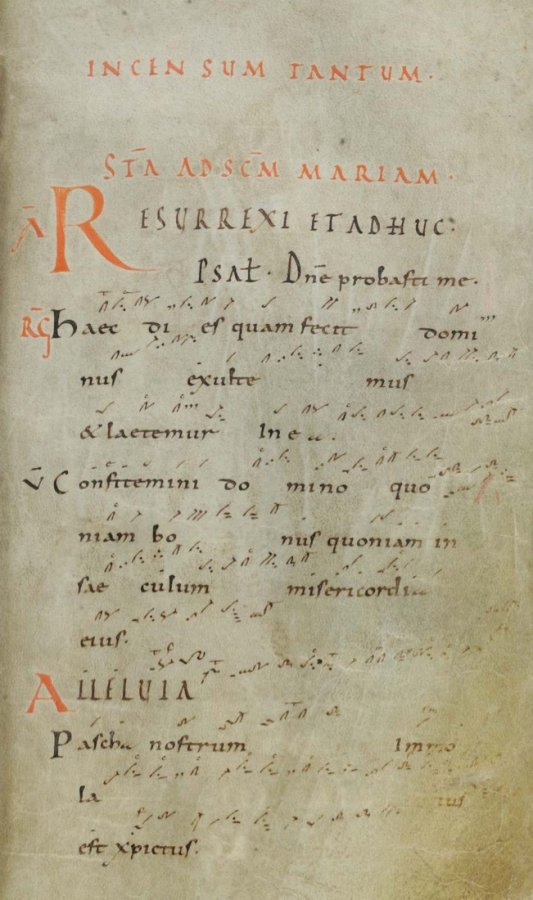 INCENSUM TANTUM.
STĀ AD SCM̄ MARIAM.
Ā RESURREXI ET ADHUC:
PSAŁ. Dn̄e probasti me.
RG̅ Haec di es quam fecit domi
nus exulte mus
& laetemur In ea.
V̄ Confitemini do mino quo
niam bo nus quoniam in
sae culum misericordia
eius.
ALLELUIA
Pascha nostrum Immo
la tus
est xpictus.